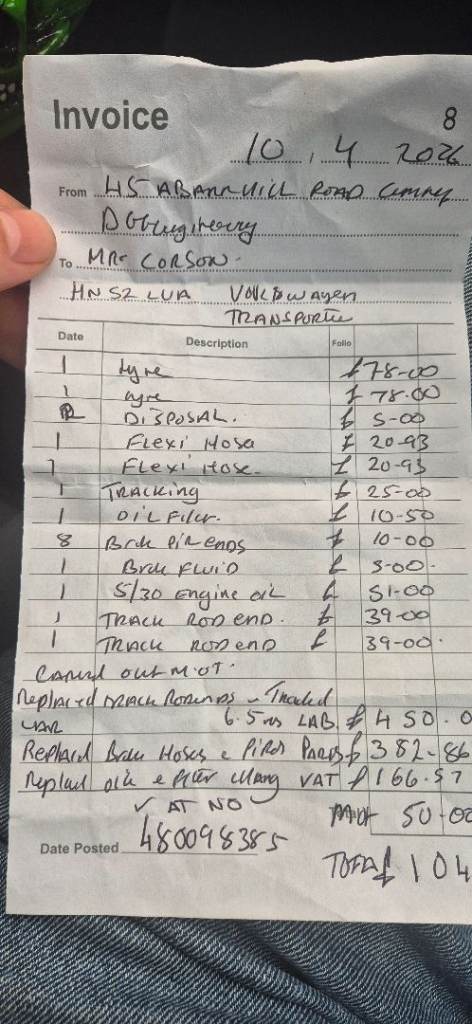 Invoice 8
10, 4 2026
From 45 ABANNHILL ROAD
DG Engineering
To MR CORSON.
HN52 LUA VOLKSWAGEN
TRANSPORTER
Date Description Folio
1 tyre £78-00
1 tyre £78.00
2 DISPOSAL. £ 5-00
1 Flexi Hose £ 20-93
1 Flexi Hose £ 20-93
1 TRACKING £ 25-00
1 OIL FILTER. £ 10-50
8 Brake PIPE ENDS £ 10-00
1 Brake FLUID £ 5-00
1 5/30 Engine OIL £ 51-00
1 TRACK ROD END. £ 39-00
1 TRACK ROD END £ 39-00.
Carried out M.O.T.
Replaced TRACK ROD ENDS - Tracked
6.5 HRS LAB £ 450.0
Replaced Brake Hoses & PIPES PARTS £ 382-86
Replaced oil & filter VAT £ 166.57
VAT NO MOT 50-00
Date Posted 480098385
TOTAL £ 104